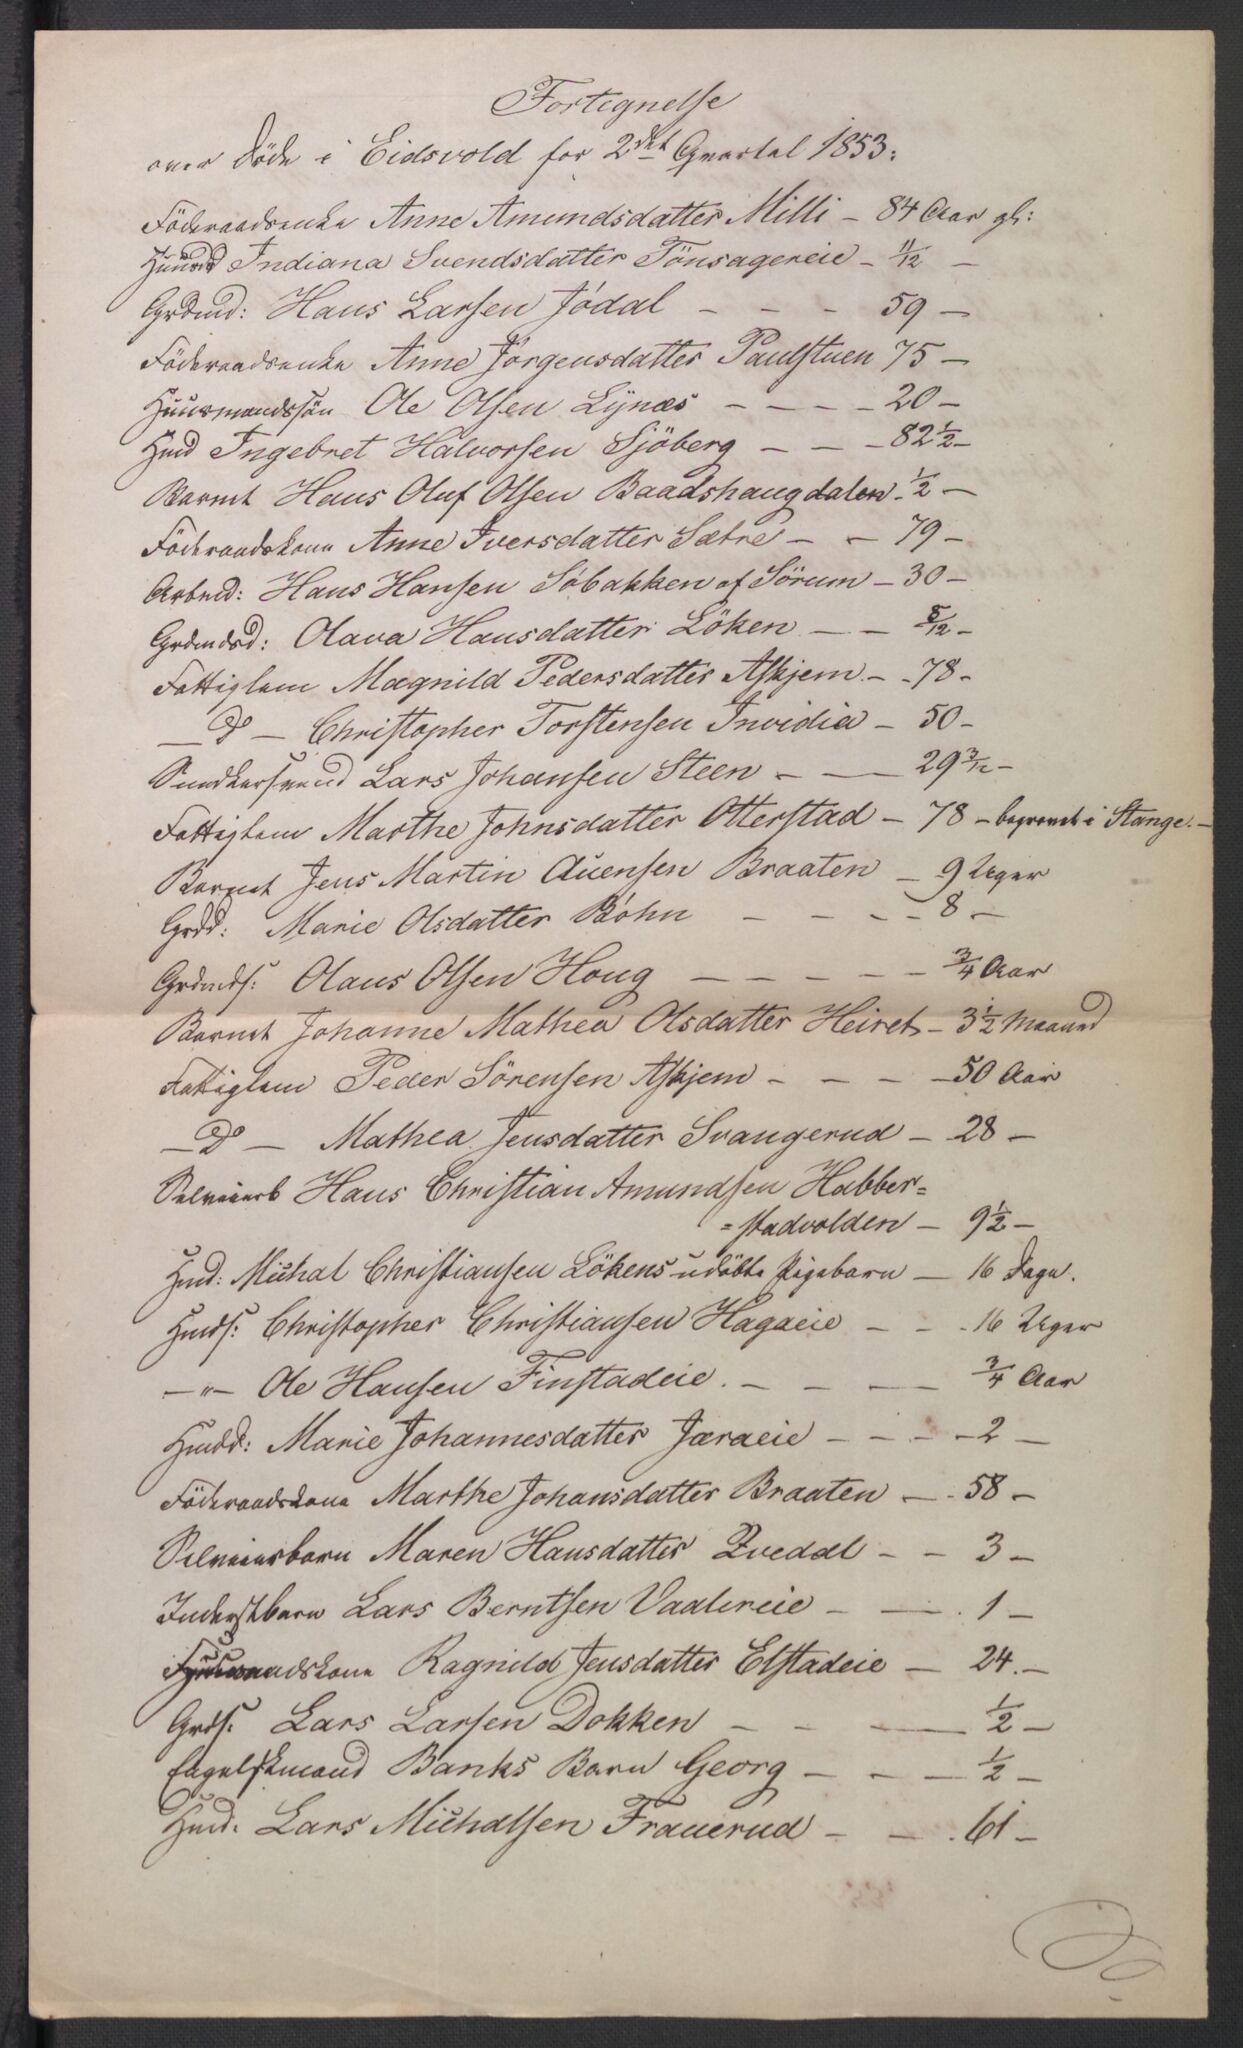 Fortegnelse
over døde i Eidsvold for 2det Qvartal 1853:
Föderaadsenke Anne Amundsdatter Milli - 84 Aar gl:
Huusmd Indiana Svendsdatter Tönsagereie - 11/12 -
Grdmd: Hans Larsen Jödal - - - 59 -
Föderaadsenke Anne Jörgensdatter Paulstuen 75 -
Huusmandssön Ole Olsen Lÿnæs - - - - 20 -
Hmd Ingebret Halvorsen Sjöberg - - - 82 1/2 -
Barnet Hans Oluf Olsen Baadshaugdalen - 1/2 -
Föderaadskone Anne Iversdatter Sætre - - 79 -
Arbeid: Hans Hansen Söbakken af Sörum - 30 -
Grdmdsd: Olava Hansdatter Löken - - 5/12 -
Fattiglem Magnild Pedersdatter Askjem - - 78 -
- Do - Christopher Torstensen Invidia - 50 -
Snedkersvend Lars Johansen Steen - - 29 3/12 -
Fattiglem Marthe Johnsdatter Otterstad - 78 - begravet i Stange. -
Barnet Jens Martin Auensen Braaten - 9 Uger
Grdd: Marie Olsdatter Böhn - - - - 8 -
Grdmds: Olaus Olsen Houg - - - - - 3/4 Aar
Barnet Johanne Mathea Olsdatter Heiret - 3 1/2 Maaned
Fattiglem Peder Sörensen Askjem - - - - 50 Aar
- Do - Mathea Jensdatter Svangerud - 28 -
Selveierb Hans Christian Amundsen Habber=
=stadvolden - 9 1/2 -
Hmd: Michal Christiansen Lökens udöbte Pigebarn - 16 Dage.
Hmds: Christopher Christiansen Hagaeie - - - 16 Uger
- " - Ole Hansen Finstadeie. - - - 3/4 Aar
Hmdd: Marie Johannesdatter Jæraeie - - - - 2 -
Föderaadskone Marthe Johansdatter Braaten - - 58 -
Selveierbarn Maren Hansdatter Qvedal - - 3 -
Inderstbarn Lars Berntsen Vaalereie - - . 1 -
Huusmandskone Ragnild Jensdatter Elstadeie - 24. -
Grds. Lars Larsen Dokken - - - 1/2 -
Engelskmand Banks Barn Georg - - - 1/2 -
Hmd. Lars Michalsen Frauerud - - . 61 -